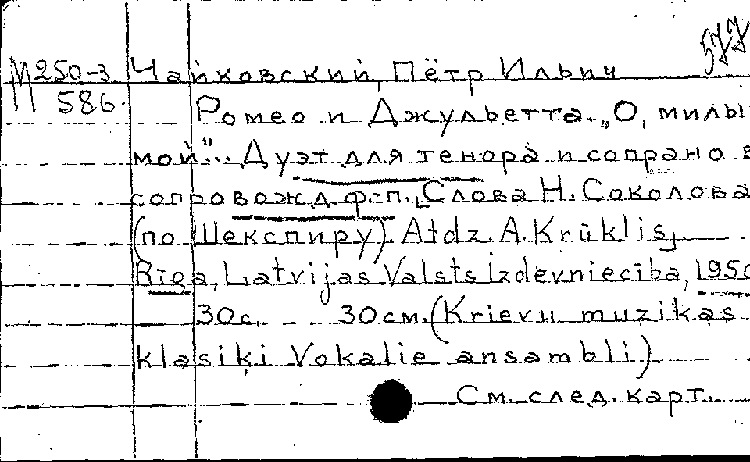 577
М250-3 Чайковский, Пётр Ильич
586. Ромео и Джульетта. „О, милы
мой“... Дуэт для тенора и сопрано в
сопровожд. ф-п. [Слова Н. Соколова
(по Шекспиру). Atdz. A. Krūklis]
Rīga, Latvijas Valsts Izdevniecība, 195
30с. 30см. (Krievu muzikas
klasiķi Vokalie ansambli)
См. след. карт.